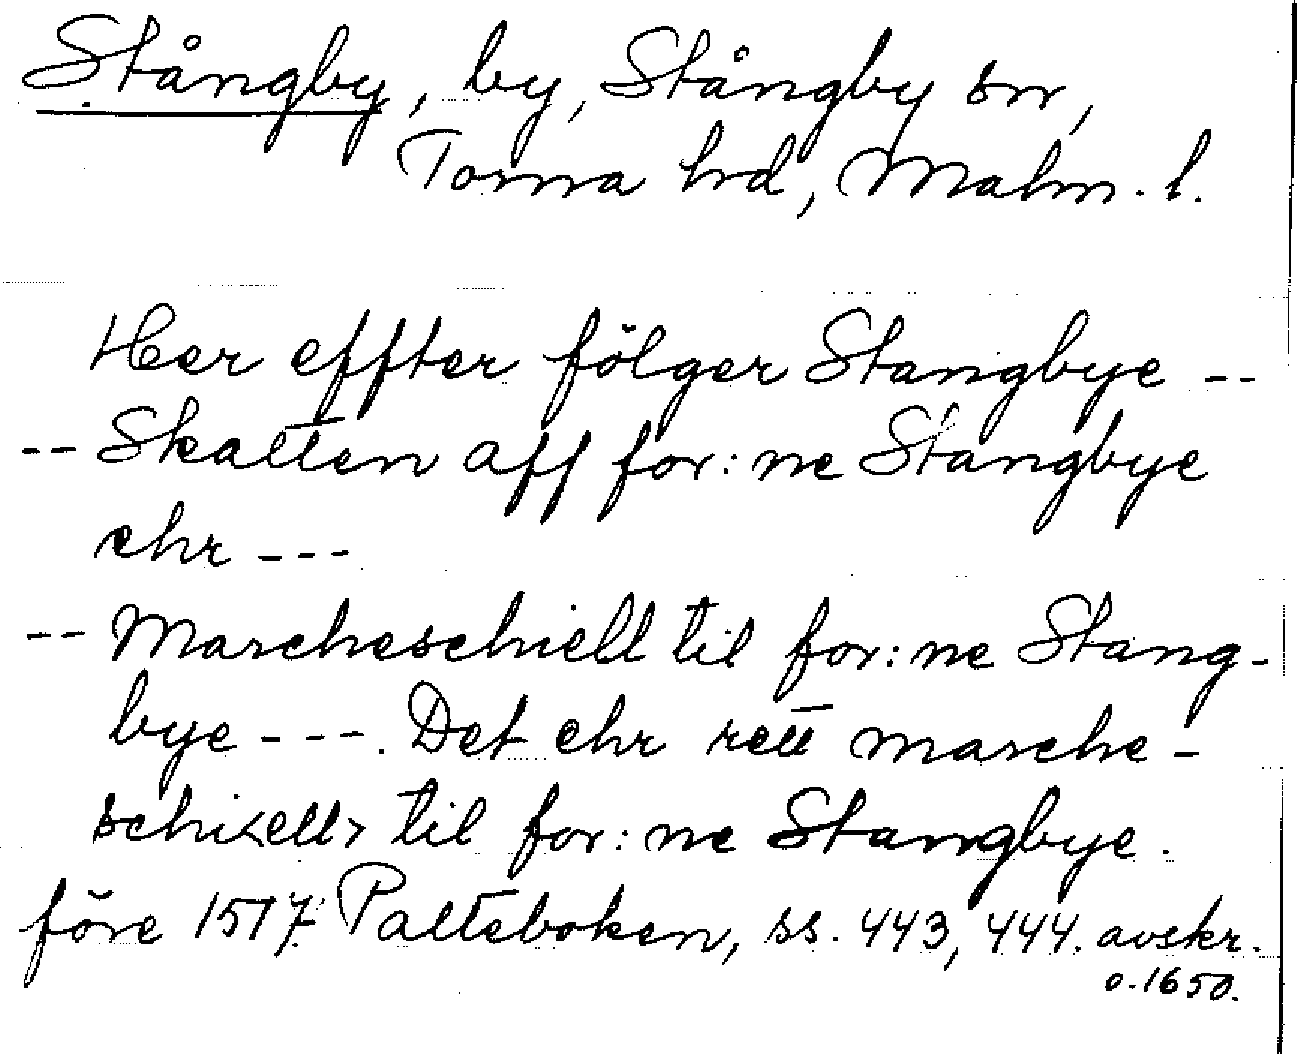 Stångby, by, Stångby sn,
Torna hd, Malm. l.
Her effter fölger Stangbye --
-- Skatten aff for:ne Stangbye
ehr ---
-- Marcheschiell til for:ne Stang-
bye ---. Det ehr rett marche-
schi<ell> til for:ne Stangbye.
före 1517. Palteboken, ss. 443, 444. avskr.
o. 1650.